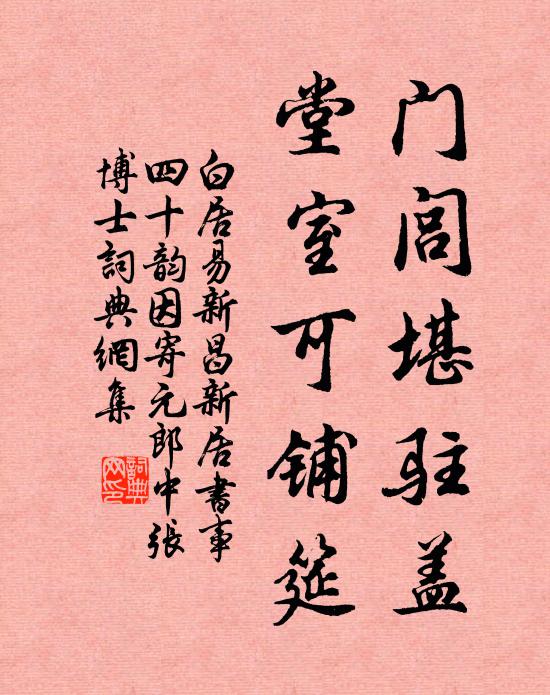 门闾堪驻盖
堂室可铺筵
白居易新昌新居书事
四十韵因寄元郎中張
博士詞典網集
詞典网印